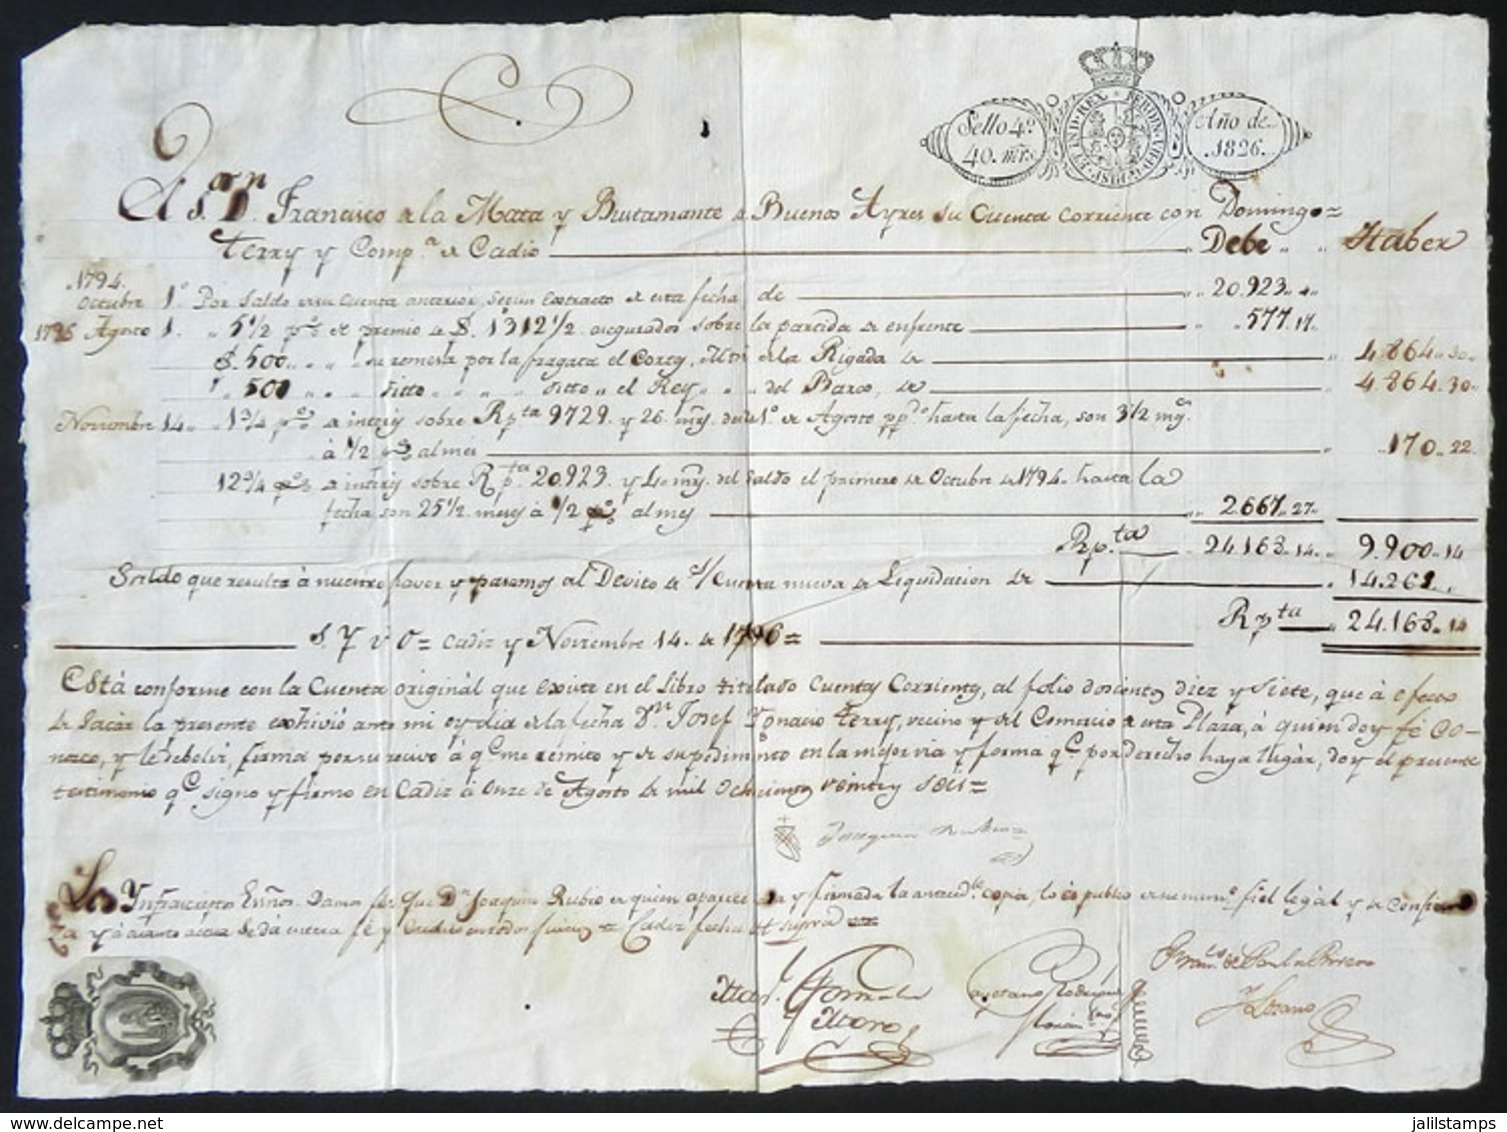 Sello 4º
40. mrs.
HISP. ET IND. REX * FERDIN. VII. D. G.
Año de
1826.
A S.or Dn. Francisco de la Mata y Bustamante de Buenos Ayres su Cuenta corriente con Domingo=
Terry y Comp.a de Cadiz Debe Haber
1794.
Octubre 1º Por Saldo en su cuenta anterior, segun extracto de esta fecha de 20.923 4
1796 Agosto 1. 5 1/2 p% de premio de $. 1312 1/2 asegurados sobre la partida de enfrente 577. 17
$. 500 su remesa por la fragata el de la Rigada de 4864 30
500 ditto ditto el Rey del Barco, de 4.864. 30
Noviembre 14 1 3/4 p% de interes sobre R pta 9729. y 26. ms. desde 1º de Agosto pp.do hasta la fecha, son 3 1/2 ms.
à 1/2 p% al mes 170 22
12 3/4 p% de interes sobre R pta. 20.923. y 4 ms. del Saldo el primero de Octubre de 1794 hasta la
fecha son 25 1/2. meses à 1/2 p% al mes 2.667. 27
R pta 24.168 14 9.900 14
Saldo que resulta à nuestro favor y pasamos al Devito de s/ Cuenta nueva de Liquidacion de 14.268
R pta 24.168 14
S. Y. ù O= Cadiz y Noviembre 14. de 1796=
Està conforme con la Cuenta original que existe en el Libro titulado Cuentas Corrientes, al folio doscientos diez y siete, que à efecto
de sacar la presente exhivió ante mi oy dia de la fecha Dn. Josef Ygnacio Terry, vecino y del Comercio de esta Plaza, à quien doy fè co-
nosco, y le debolvi, firma por su recivo à q.e me remito y de su pedim.nto en la mejor via y forma q.e por derecho haya lugàr, doy el presente
testimonio q.e signo y firmo en Cadiz à Onze de Agosto de mil ochocientos veinte y seis=
Joaquin Rubio
Los Ynfrascriptos Essños. Damos fè: Que Dn. Joaquin Rubio de quien aparece y firmada la anteced.te copia, lo es publico de numero fiel legal y de confianza
y à quanto actua se dà entera fè y Credito en todos juicios Cadiz fecha ut supra
Gonzalez
Otero
Cayetano Rodriguez
Fran.co de Paula
Lozano
jalilstamps